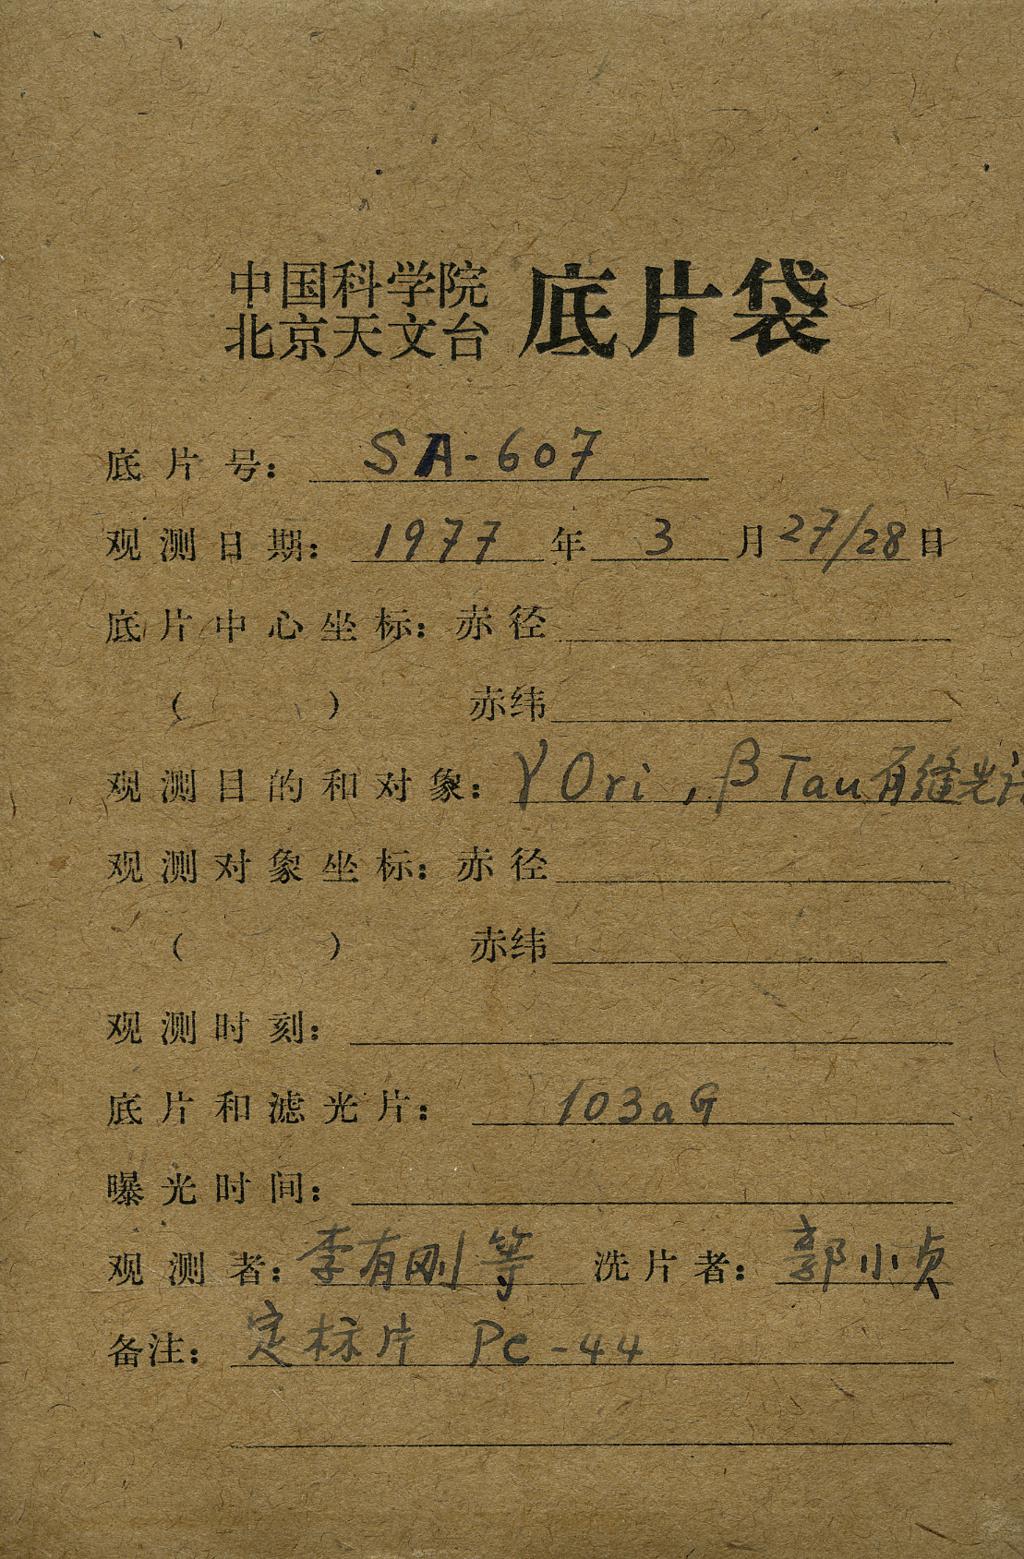 中国科学院
北京天文台 底片袋
底片号: SA-607
观测日期: 1977年 3月27/28日
底片中心坐标: 赤径
( ) 赤纬
观测目的和对象: γ Ori, β Tau 有缝光
观测对象坐标: 赤径
( ) 赤纬
观测时刻:
底片和滤光片: 103aG
曝光时间:
观测者: 李有刚 等 洗片者: 郭小贞
备注: 定标片 PC-44